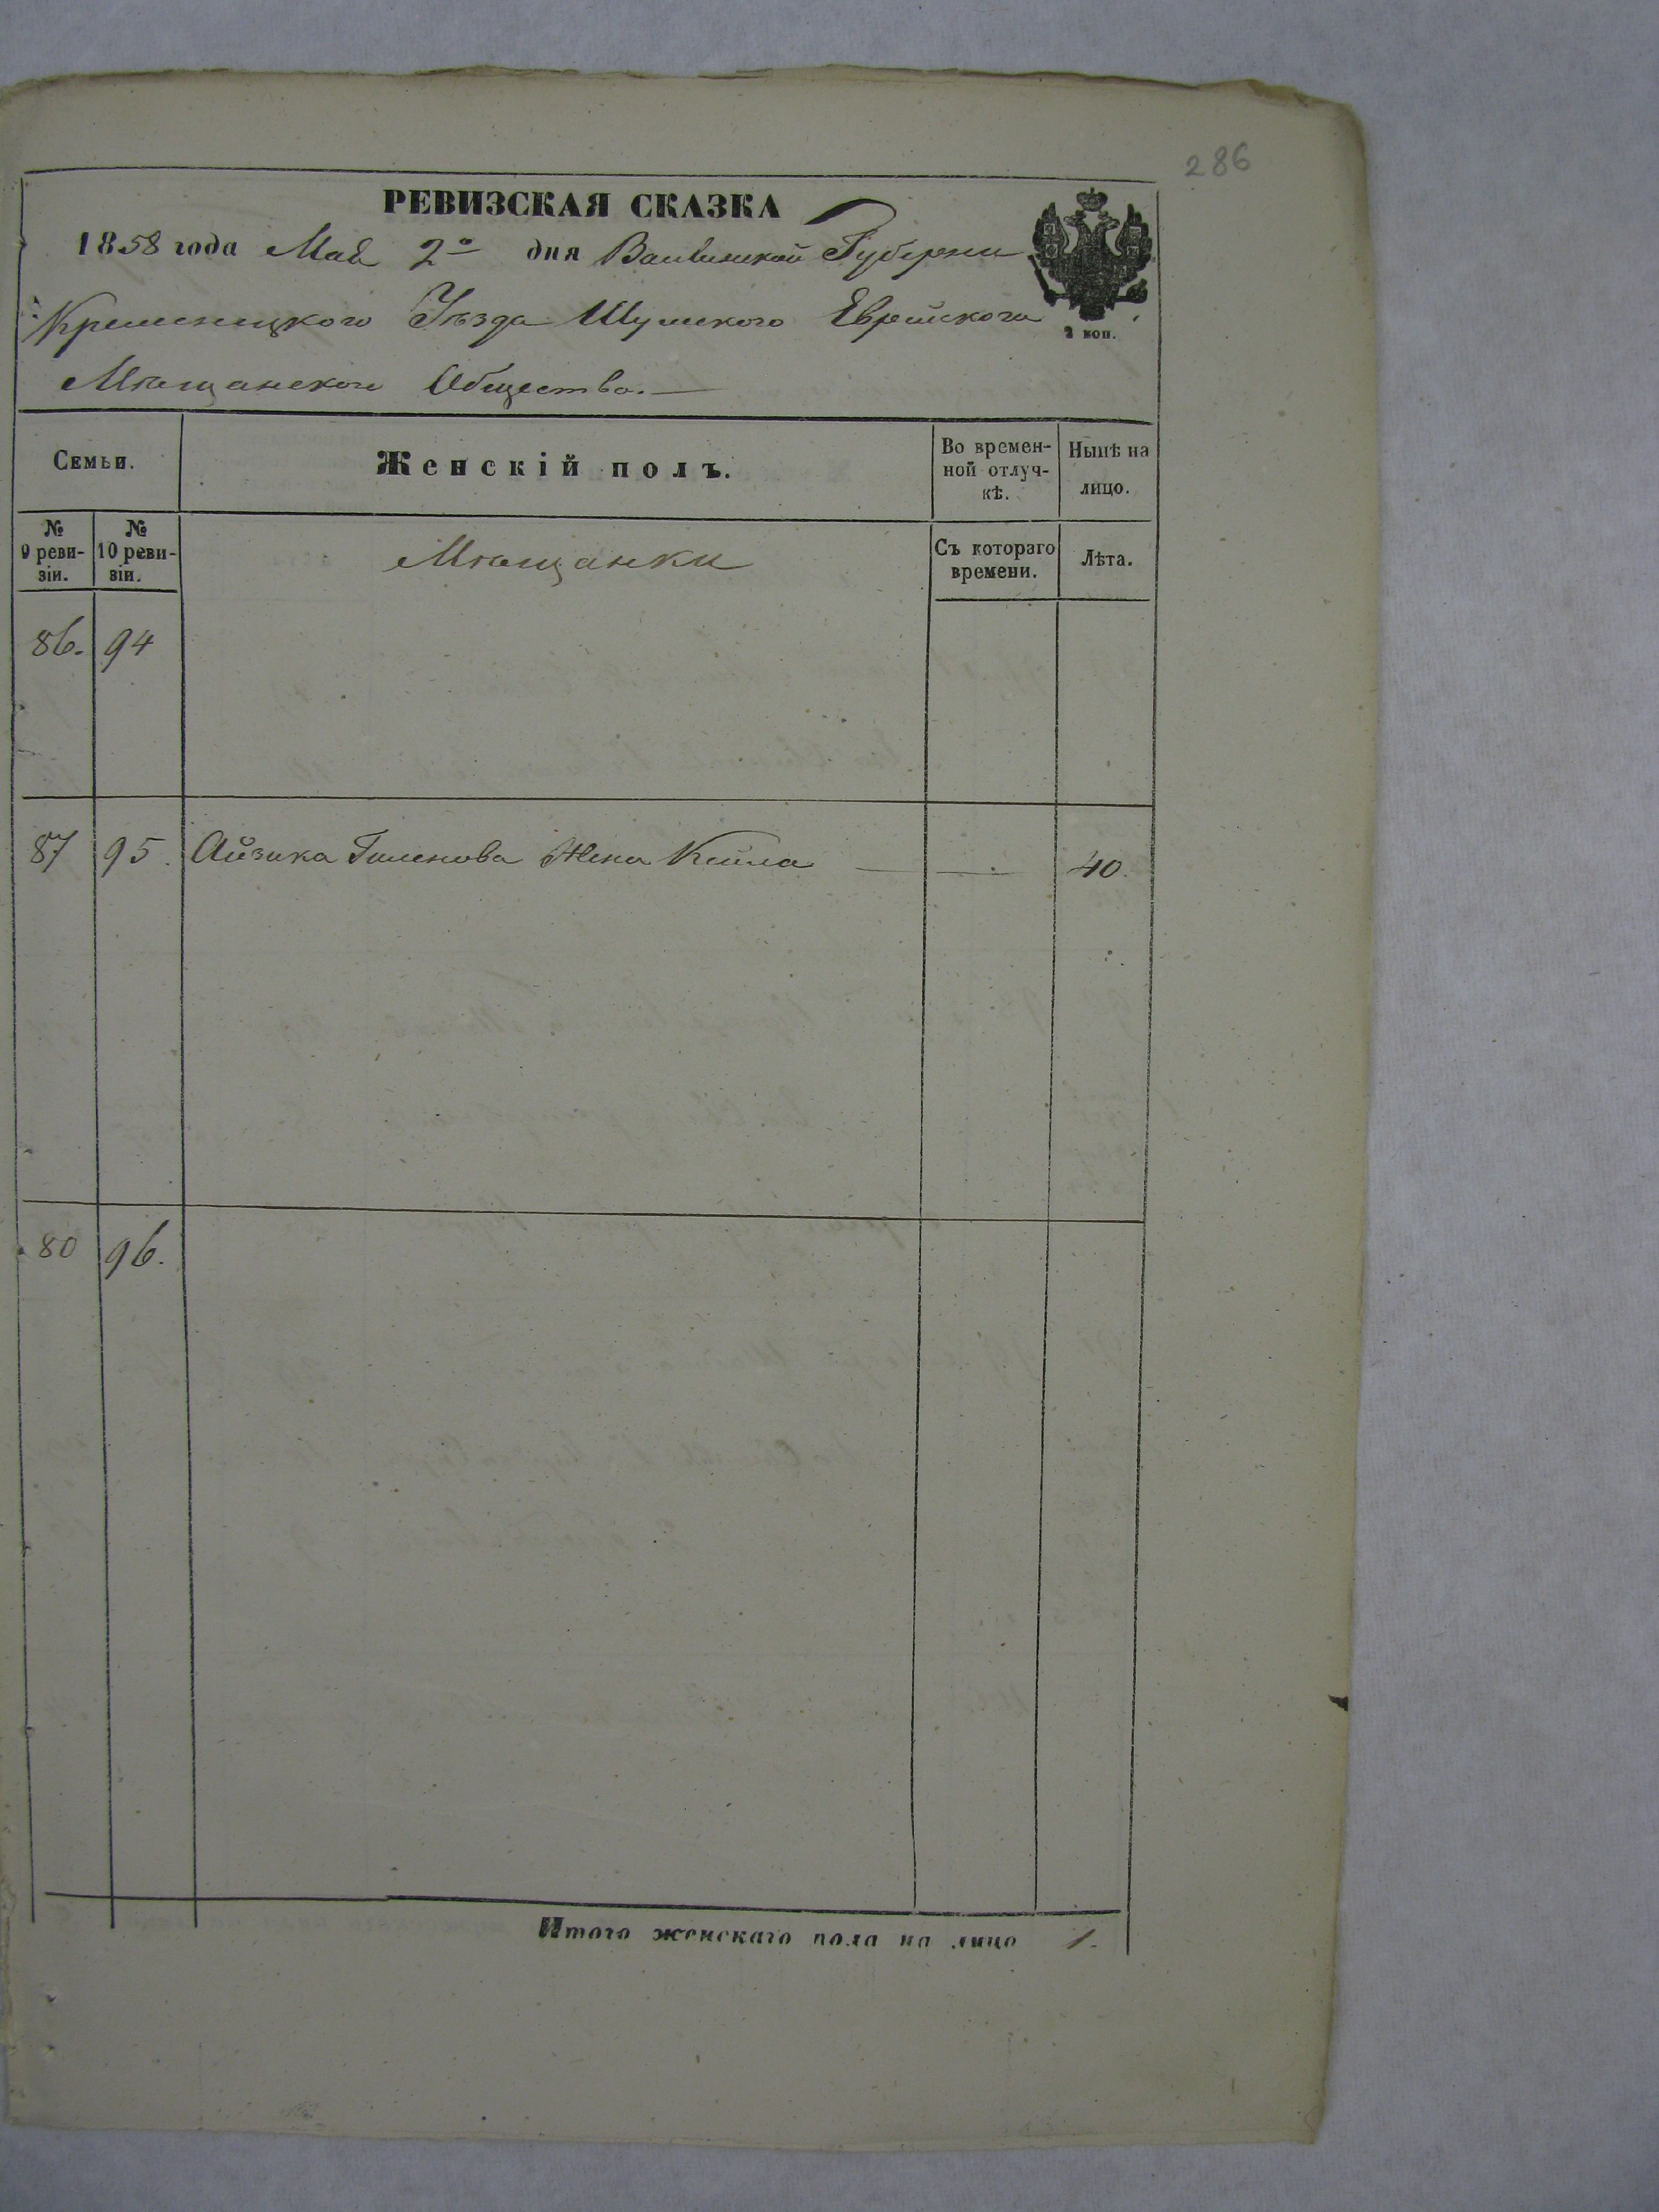 286
РЕВИЗСКАЯ СКАЗКА
1858 года Мая 2го дня Волынской Губернии
Кременецкого Уѣзда Шумского Еврейского
2 коп.
Мѣщанского Общества.
Семьи.
Женскій полъ.
Во времен-
ной отлуч-
кѣ.
Нынѣ на
лицо.
№
9 реви-
зіи.
№
10 реви-
зіи.
Мѣщанки
Съ котораго
времени.
Лѣта.
86. 94
87 95. Айзика Жена Кейла — 40.
80 96.
Итого женскаго пола на лицо 1.